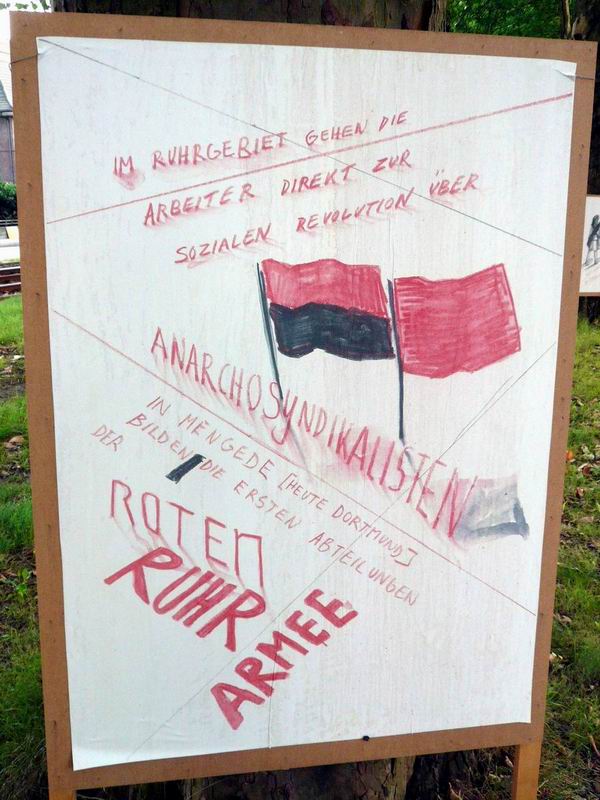 IM RUHRGEBIET GEHEN DIE
ARBEITER DIREKT ZUR
SOZIALEN REVOLUTION ÜBER
ANARCHOSYNDIKALISTEN
IN MENGEDE [HEUTE DORTMUND]
BILDEN DIE ERSTEN ABTEILUNGEN
DER
ROTEN
RUHR
ARMEE